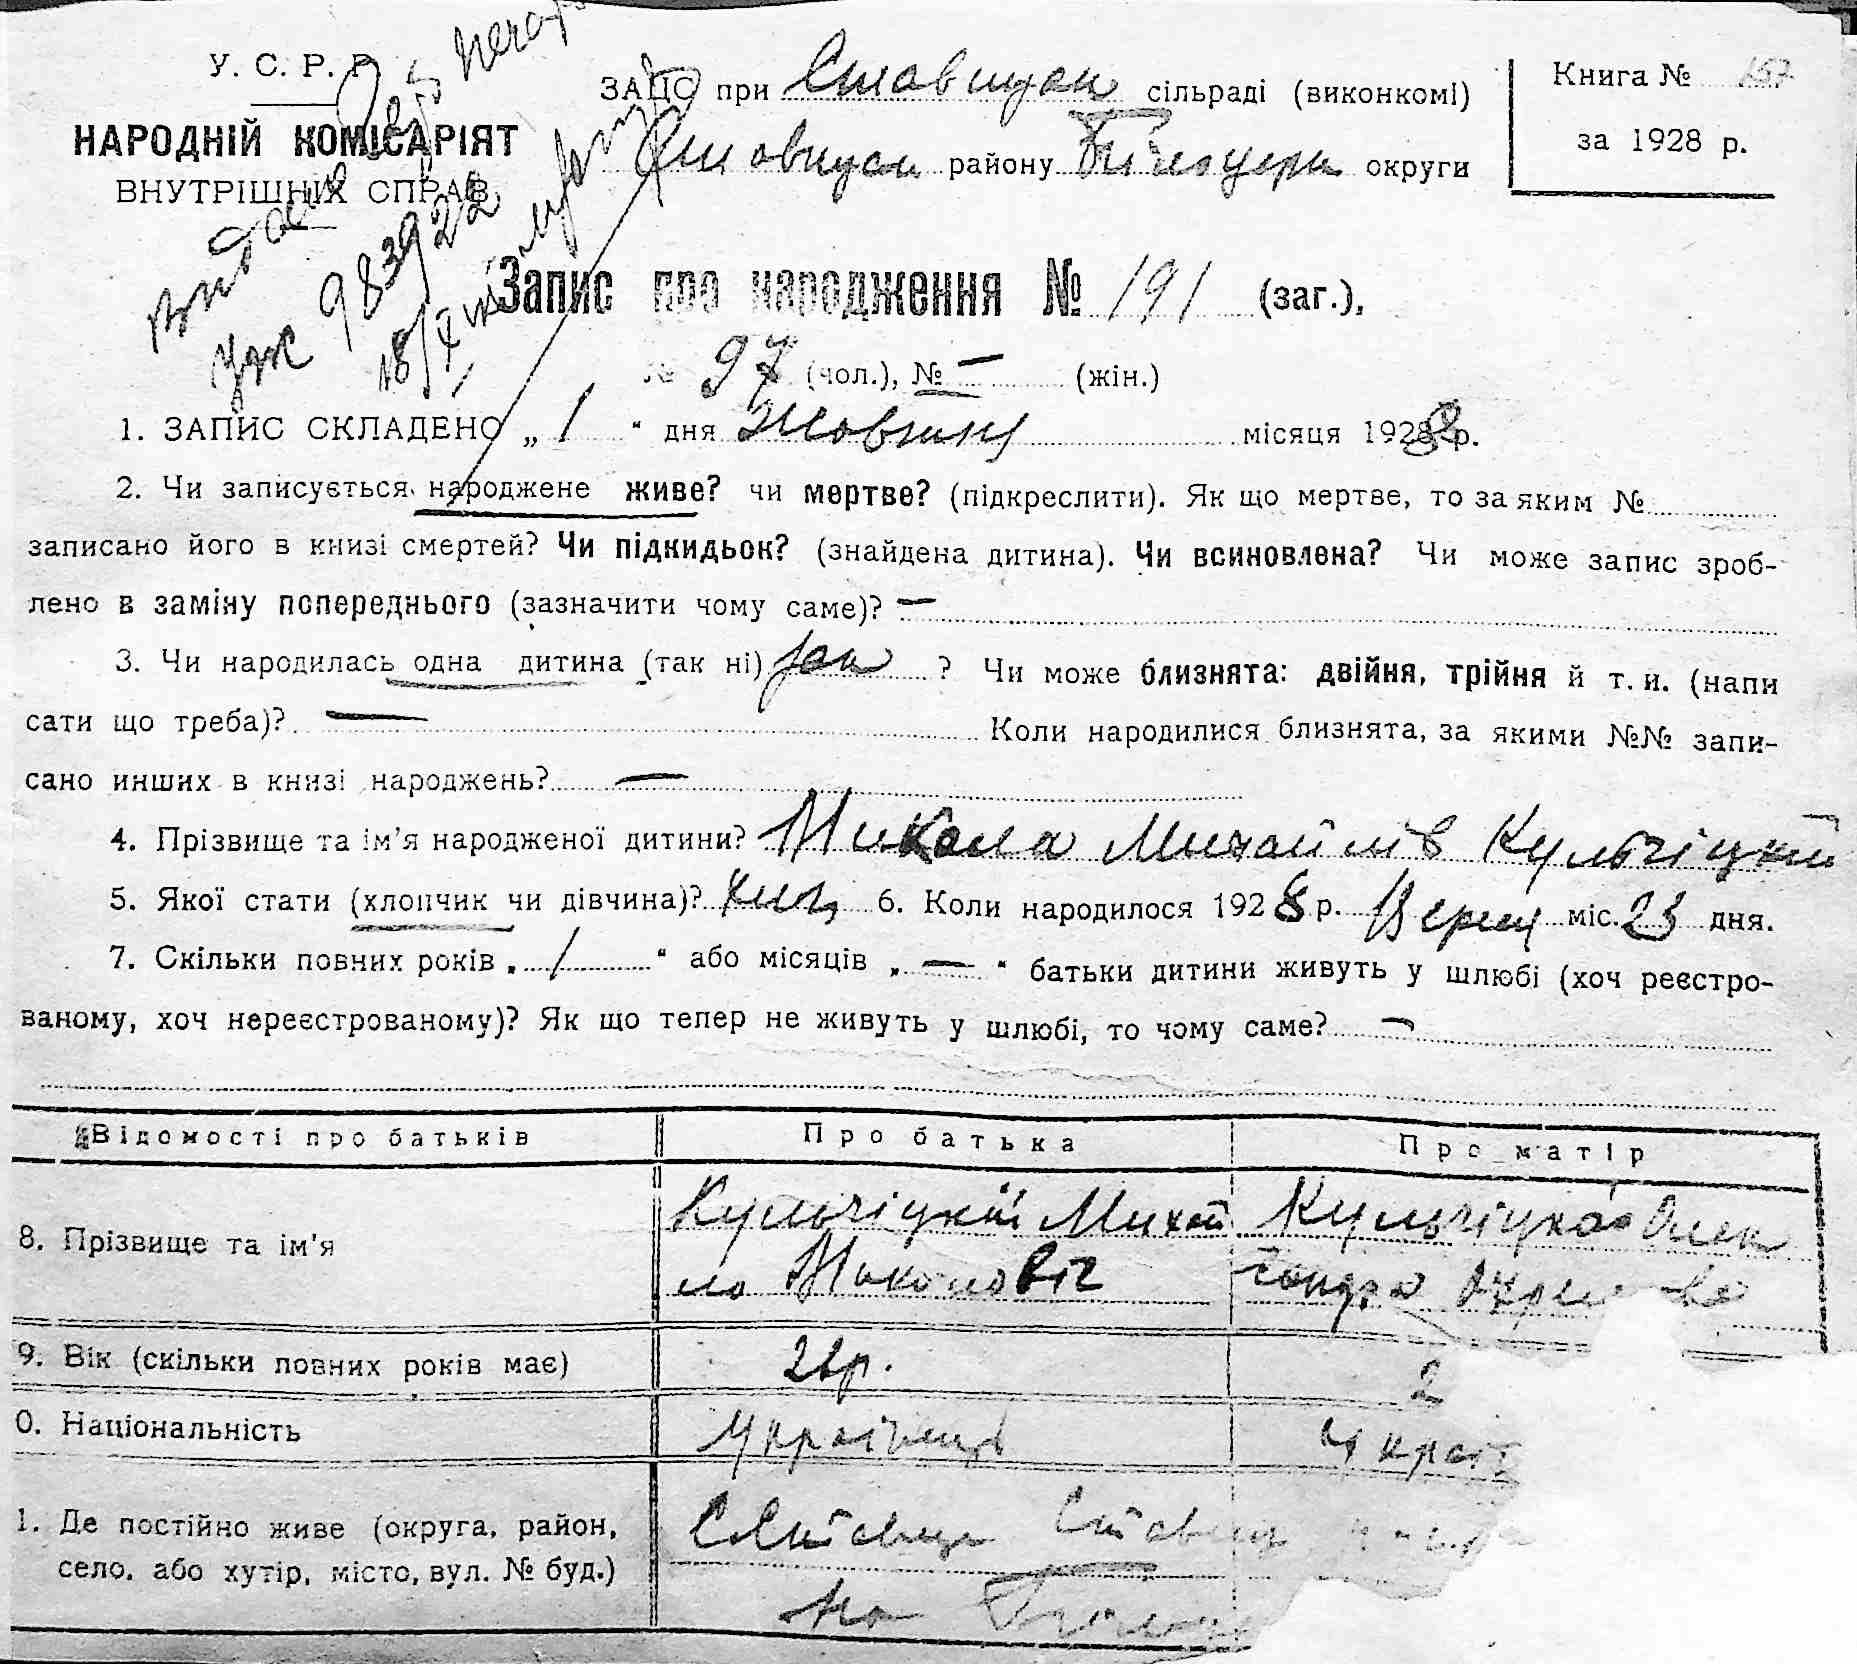 У. С. Р. Р.
НАРОДНІЙ КОМІСАРІЯТ
ВНУТРІШНІХ СПРАВ
ЗАЦС при Ставищан сільраді (виконкомі)
Ставищан району Білоцерк округи
Книга № 157
за 1928 р.
983922
Запис про народження № 191 (заг.),
№ 97 (чол.), № — (жін.)
1. ЗАПИС СКЛАДЕНО „ 1 “ дня Жовтня місяця 1928 р.
2. Чи записується народжене живе? чи мертве? (підкреслити). Як що мертве, то за яким №
записано його в книзі смертей? Чи підкидьок? (знайдена дитина). Чи всиновлена? Чи може запис зроб-
лено в заміну попереднього (зазначити чому саме)? —
3. Чи народилась одна дитина (так ні) так ? Чи може близнята: двійня, трійня й т. и. (напи
сати що треба)? — Коли народилися близнята, за якими №№ запи-
сано инших в книзі народжень? —
4. Прізвище та ім’я народженої дитини? Микола Михайлів Кульчіцкій
5. Якої стати (хлопчик чи дівчина)? хлоп 6. Коли народилося 1928 р. Вересн міс. 23 дня.
7. Скільки повних років „ 1 “ або місяців „ — “ батьки дитини живуть у шлюбі (хоч реєстро-
ваному, хоч нереєстрованому)? Як що тепер не живуть у шлюбі, то чому саме? —
Відомості про батьків Про батька Про матір
8. Прізвище та ім’я Кульчіцкій Михай Кульчіцка Олек
ло Миколовіч сандра
9. Вік (скільки повних років має) р. 2
0. Національність Українець Украї
1. Де постійно живе (округа, район,
село, або хутір, місто, вул. № буд.)